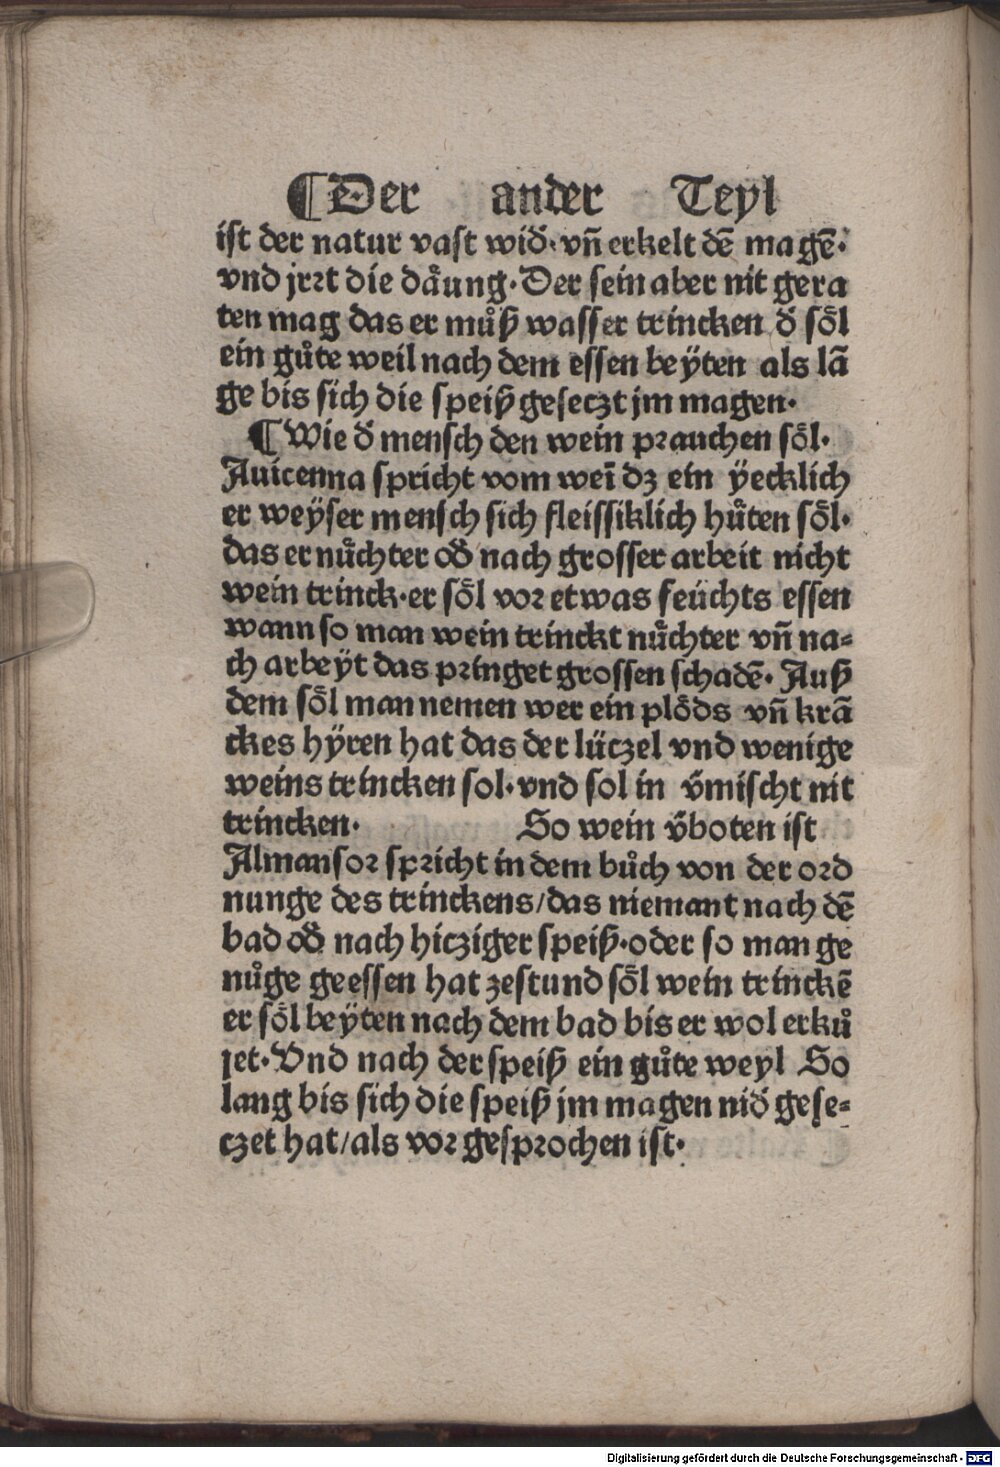 ¶Der ander Teyl
ist der natur vast wid̛· vn̄ erkelt dē magē·
vnd jrꝛt die dåung· Der sein aber nit gera
ten mag das er můſʒ wasser trincken d̛ sȯl
ein gůte weil nach dem essen beÿten als lā
ge bis sich die speiß geseczt jm magen·
¶Wie d̛ mensch den wein prauchen sȯl·
Auicenna spricht vom weī dz ein ÿecklich
er weÿser mensch sich fleissiklich hůten sȯl·
das er nůchter od̛ nach grosser arbeit nicht
wein trinck·er sȯl vor etwas feüchts essen
wann so man wein trinckt nůchter vn̄ na⸗
ch arbeÿt das pringet grossen schadē· Auß
dem sȯl man nemen wer ein plȯds vn̄ krā
ckes hÿren hat das der lüczel vnd wenige
weins trincken sol·vnd sol in v̛mischt nit
trincken· So wein v̛boten ist
Almansor spricht in dem bůch von der ord
nunge des trinckens/das niemant nach dē
bad od̛ nach hicziger speiß·oder so man ge
nůge geessen hat zestund sȯl wein trinckē
er sȯl beÿten nach dem bad bis er wol erků
jet· Vnd nach der speiß ein gůte weyl So
lang bis sich die speiß jm magen nid̛ gese⸗
czet hat/als vor gesprochen ist·
Digitalisierung gefördert durch die Deutsche Forschungsgemeinschaft - DFG